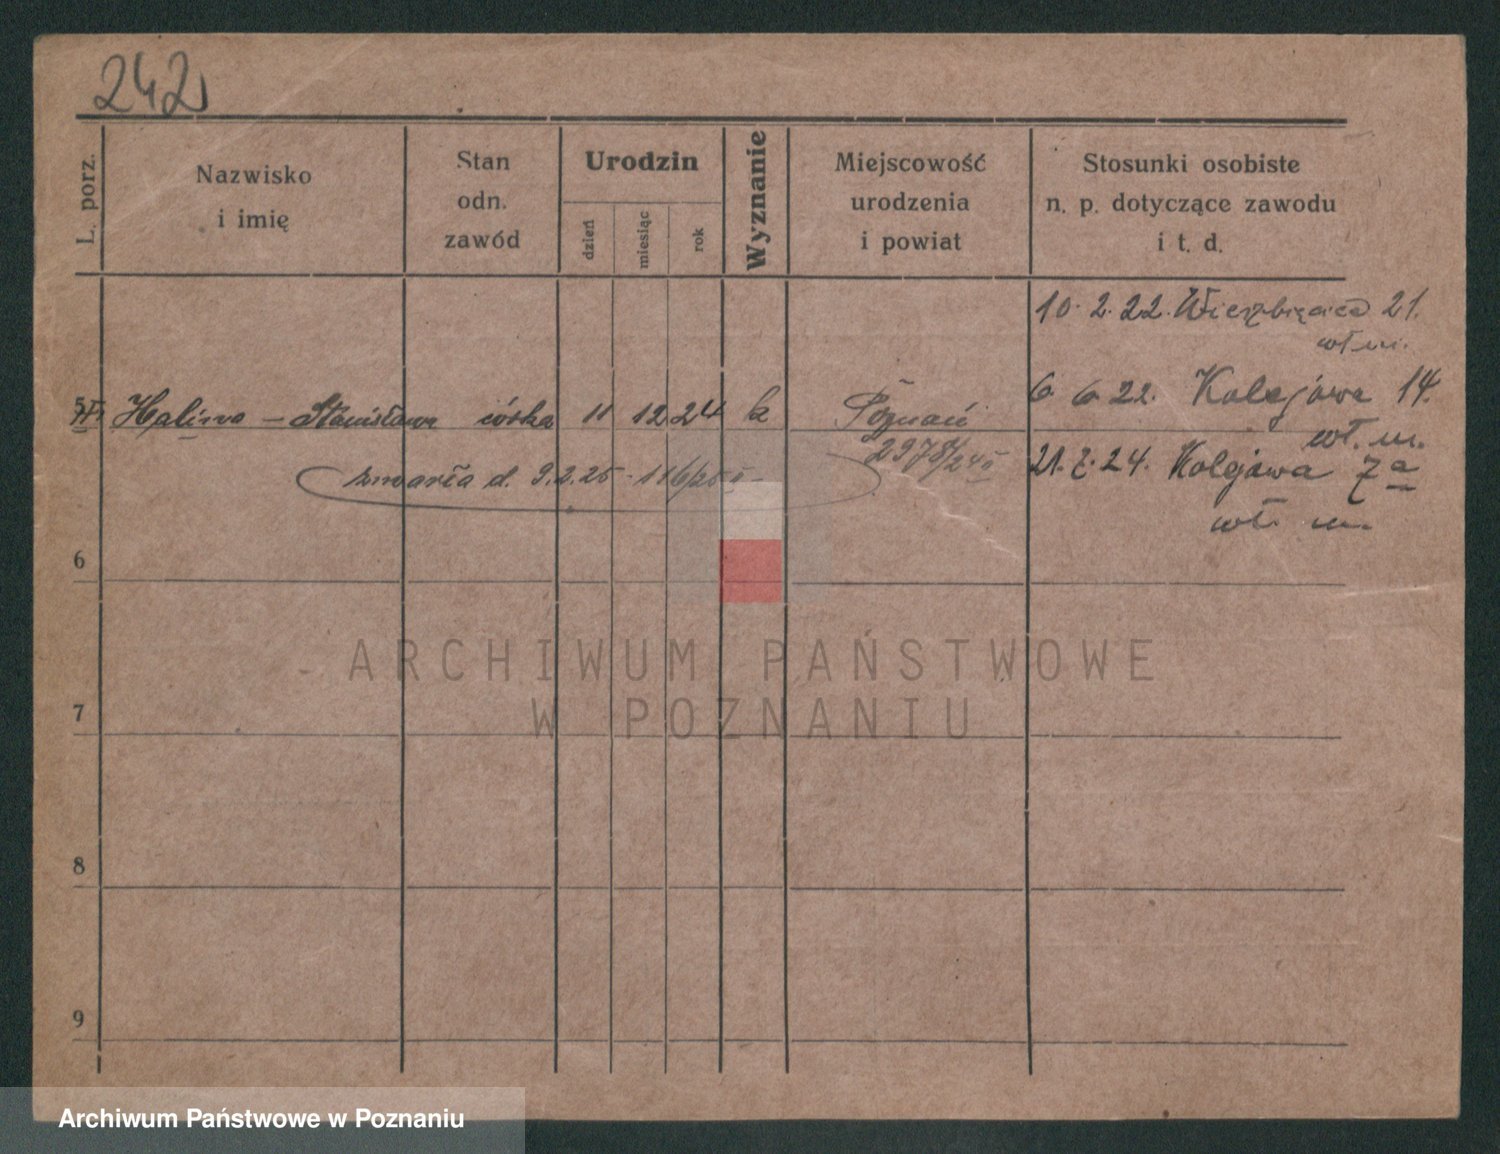 242
L. porz.
Nazwisko
i imię
Stan
odn.
zawód
Urodzin
dzień
miesiąc
rok
Wyznanie
Miejscowość
urodzenia
i powiat
Stosunki osobiste
n. p. dotyczące zawodu
i t. d.
10. 2. 22. Wierzbięcice 21.
wł. m.
6. 6. 22. Kolejowa 14.
wł. m.
5 Halina - Stanisława córka 11 12 24 k Poznań
2978/24 II
zmarła d. 9.2.25 - 116/25 II
21. 7. 24. Kolejowa 7a
wł. m.
6
7
8
9
ARCHIWUM PAŃSTWOWE
W POZNANIU
Archiwum Państwowe w Poznaniu